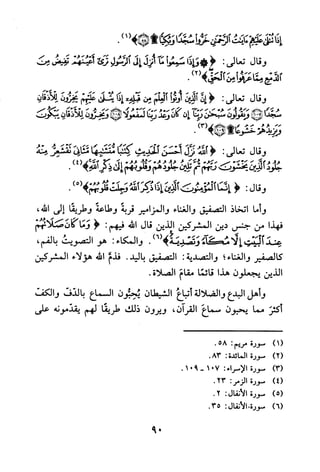 إِذَا تُتْلَىٰ عَلَيْهِمْ آيَاتُ الرَّحْمَٰنِ خَرُّوا سُجَّدًا وَبُكِيًّا ﴿٥٨﴾﴾(١).
وقال تعالى: ﴿وَإِذَا سَمِعُوا مَا أُنزِلَ إِلَى الرَّسُولِ تَرَىٰ أَعْيُنَهُمْ تَفِيضُ مِنَ
الدَّمْعِ مِمَّا عَرَفُوا مِنَ الْحَقِّ﴾(٢).
وقال تعالى: ﴿إِنَّ الَّذِينَ أُوتُوا الْعِلْمَ مِن قَبْلِهِ إِذَا يُتْلَىٰ عَلَيْهِمْ يَخِرُّونَ لِلْأَذْقَانِ
سُجَّدًا ﴿١٠٧﴾ وَيَقُولُونَ سُبْحَانَ رَبِّنَا إِن كَانَ وَعْدُ رَبِّنَا لَمَفْعُولًا ﴿١٠٨﴾ وَيَخِرُّونَ لِلْأَذْقَانِ يَبْكُونَ
وَيَزِيدُهُمْ خُشُوعًا ﴿١٠٩﴾﴾(٣).
وقال تعالى: ﴿اللَّهُ نَزَّلَ أَحْسَنَ الْحَدِيثِ كِتَابًا مُّتَشَابِهًا مَّثَانِيَ تَقْشَعِرُّ مِنْهُ
جُلُودُ الَّذِينَ يَخْشَوْنَ رَبَّهُمْ ثُمَّ تَلِينُ جُلُودُهُمْ وَقُلُوبُهُمْ إِلَىٰ ذِكْرِ اللَّهِ﴾(٤).
وقال: ﴿إِنَّمَا الْمُؤْمِنُونَ الَّذِينَ إِذَا ذُكِرَ اللَّهُ وَجِلَتْ قُلُوبُهُمْ﴾(٥).
وأما اتخاذ التصفيق والغناء والمزامير قربة وطاعة وطريقا إلى الله،
فهذا من جنس دين المشركين الذين قال الله فيهم: ﴿وَمَا كَانَ صَلَاتُهُمْ
عِندَ الْبَيْتِ إِلَّا مُكَاءً وَتَصْدِيَةً﴾(٦). والمكاء: هو التصويت بالفم،
كالصفير والغناء؛ والتصدية: التصفيق باليد. فذم الله هؤلاء المشركين
الذين يجعلون هذا قائما مقام الصلاة.
وأهل البدع والضلالة أتباع الشيطان يحبون السماع بالدف والكف
أكثر مما يحبون سماع القرآن، ويرون ذلك طريقا لهم يقدمونه على
(١) سورة مريم: ٥٨.
(٢) سورة المائدة: ٨٣.
(٣) سورة الإسراء: ١٠٧ - ١٠٩.
(٤) سورة الزمر: ٢٣.
(٥) سورة الأنفال: ٢.
(٦) سورة الأنفال: ٣٥.
٩٠